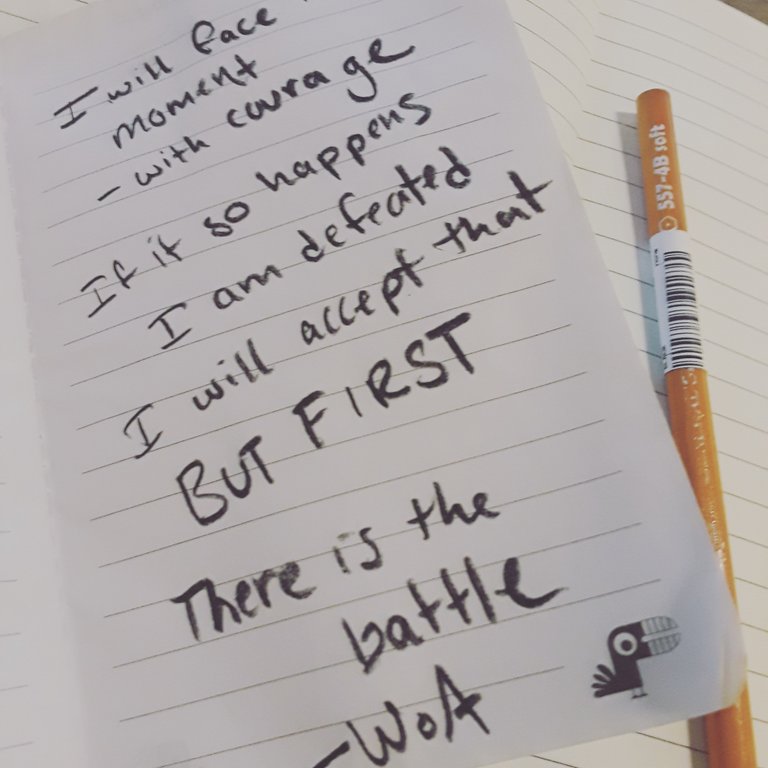 I will face
moment
- with courage
If it so happens
I am defeated
I will accept that
BUT FIRST
There is the
battle
-WoA
557-4B soft